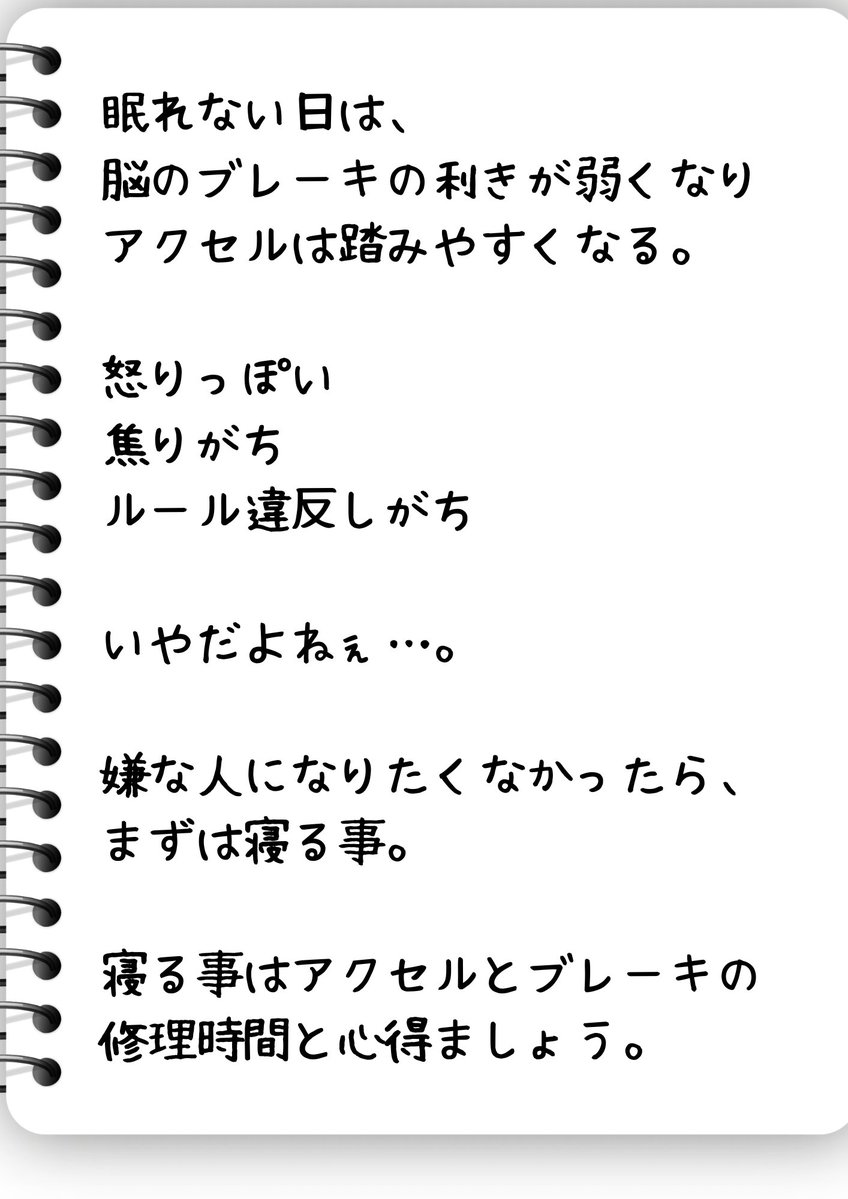 眠れない日は、
脳のブレーキの利きが弱くなり
アクセルは踏みやすくなる。
怒りっぽい
焦りがち
ルール違反しがち
いやだよねぇ…。
嫌な人になりたくなかったら、
まずは寝る事。
寝る事はアクセルとブレーキの
修理時間と心得ましょう。